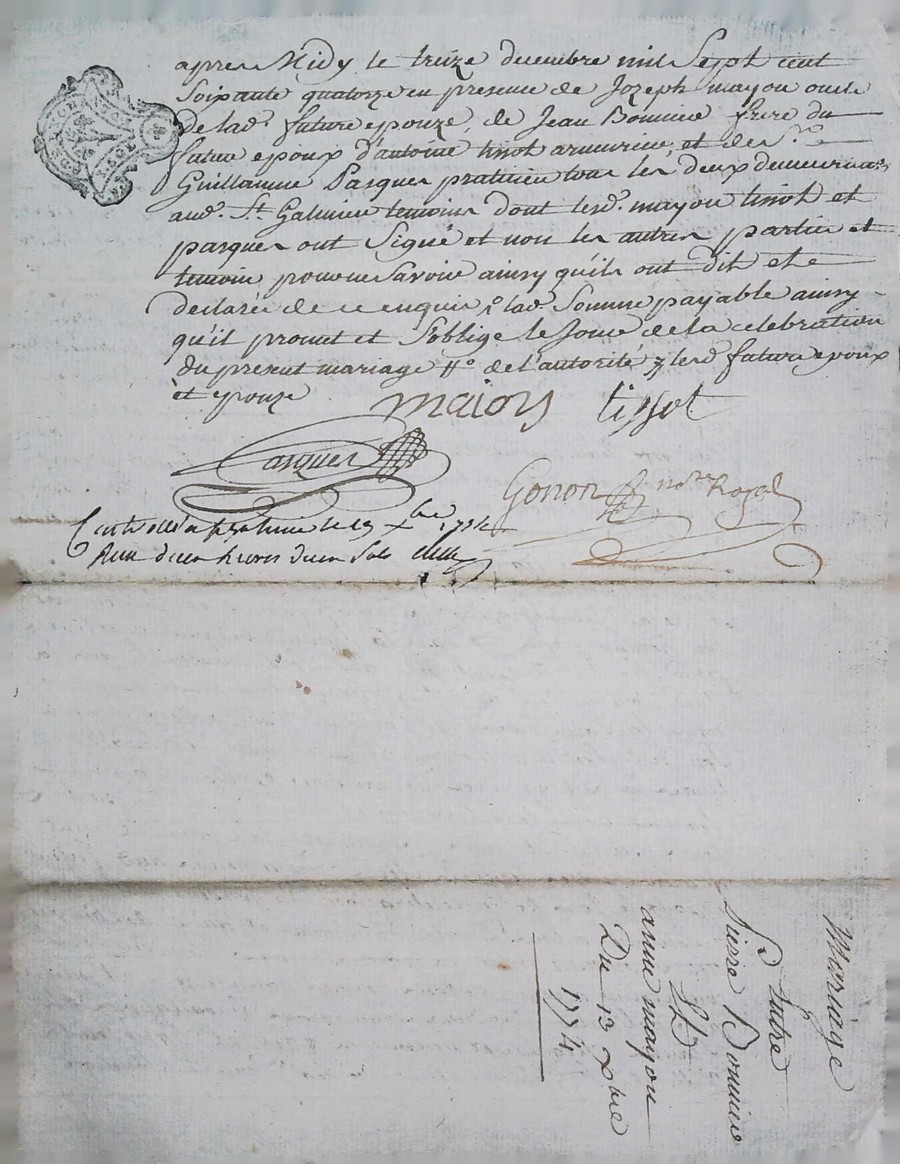 apres Midy le treize decembre mil Sept cent
Soixante quatorze en presence de Jozeph mayou oncle
de lad. future epouze, de Jean Bonnier frere du
futur epoux d'antoine tissot armurier, et de Sr.
Guillaume Pasquer praticien tous les deux demeurant
aud. St. Galmier temoins dont lesd. mayou tissot et
pasquer ont Signé et non les autres parties et
temoin pour ne Savoir ainsy qu'ils ont dit et
declaré de ce enquis lad. Somme payable ainsy
qu'il promet et S'oblige le Jour de la celebration
du present mariage de l'autorité lesd. futurs epoux
et epouze
maiors tissot
Pasquer
Gonon nore. Royal
xbre 1774
Mariage
d'entre
Pierre Bonnier
Et
anne mayou
Du 13 xbre
1774